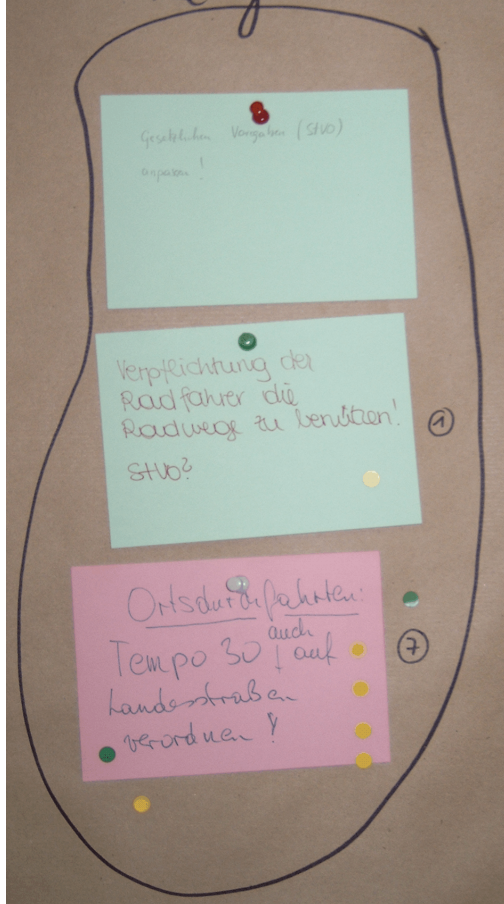 Gesetzlichen Vorgaben (StVO)
anpassen!
Verpflichtung der
Radfahrer die
Radwege zu benützen!
StVO?
1
Ortsdurchfahrten:
auch
Tempo 30 auf
Landesstraßen
verordnen!
7